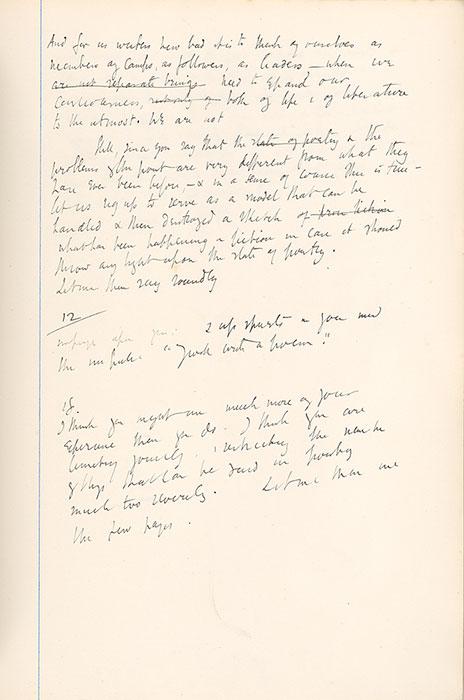 And for us writers how bad it is to think of ourselves as
members of camps, as followers, as leaders – when we
are not separate beings need to expand our
consciousness, both of life & of literature
to the utmost. We are not
Still, since you say that the state of poetry & the
problems of the poet are very different from what they
have ever been before, – & in a sense of course this is true –
let us rig up to serve as a model that can be
handled & then destroyed a sketch of prose fiction
what has been happening in fiction in case it should
throw any light upon the state of poetry.
Let me then say roundly
12
upon you. up spurts in your mind
the impulse "I will write a poem."
18.
I think you might use much more of your
experience than you do. I think you are
limiting yourself, & restricting the number
of things that can be said in poetry
much too severely. Let me then use
the few pages.